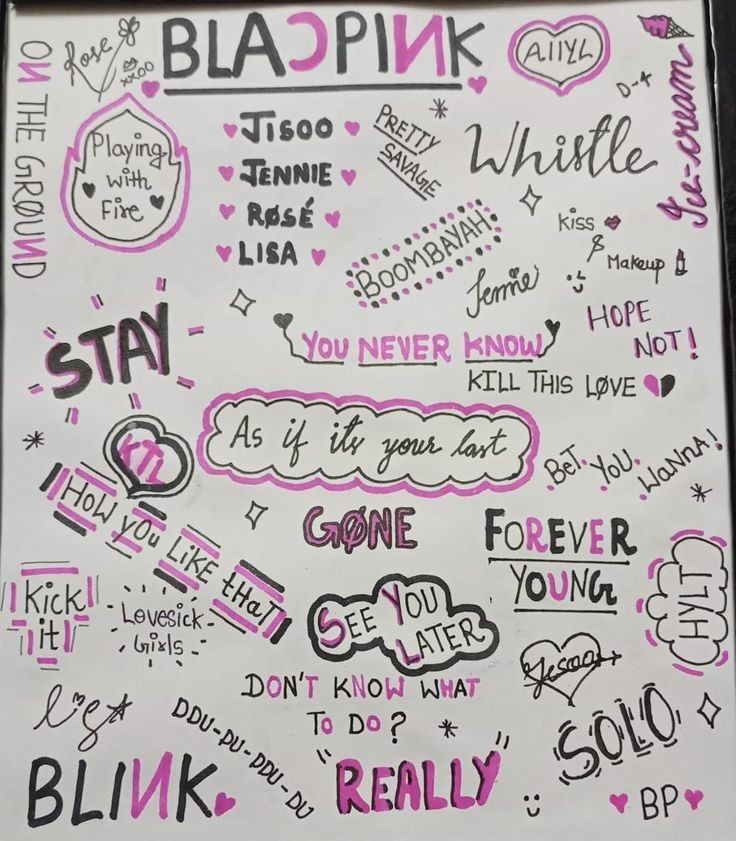 BLACPINK
Rose
xxoo
AIIYL
D-4
ON THE GRØUND
Ice-cream
Playing
with
Fire
JISOO
JENNIE
RØSÉ
LISA
PRETTY
SAVAGE
Whistle
Kiss
&
Makeup
BOOMBAYAH
Jennie
STAY
YOU NEVER KNOW
HOPE
NOT!
KILL THIS LØVE
KTL
As if it's your last
BeT YoU WaNNA!
HoW yoU LiKE tHaT
GØNE
FOREVER
YOUNG
HYLT
Kick
it
Lovesick
Girls
SEE YOU
LATER
DON'T KNOW WHAT
TO DO?
Jisoo
Lisa
DDU-DU-DDU-DU
SOLO
BLINK
REALLY
BP